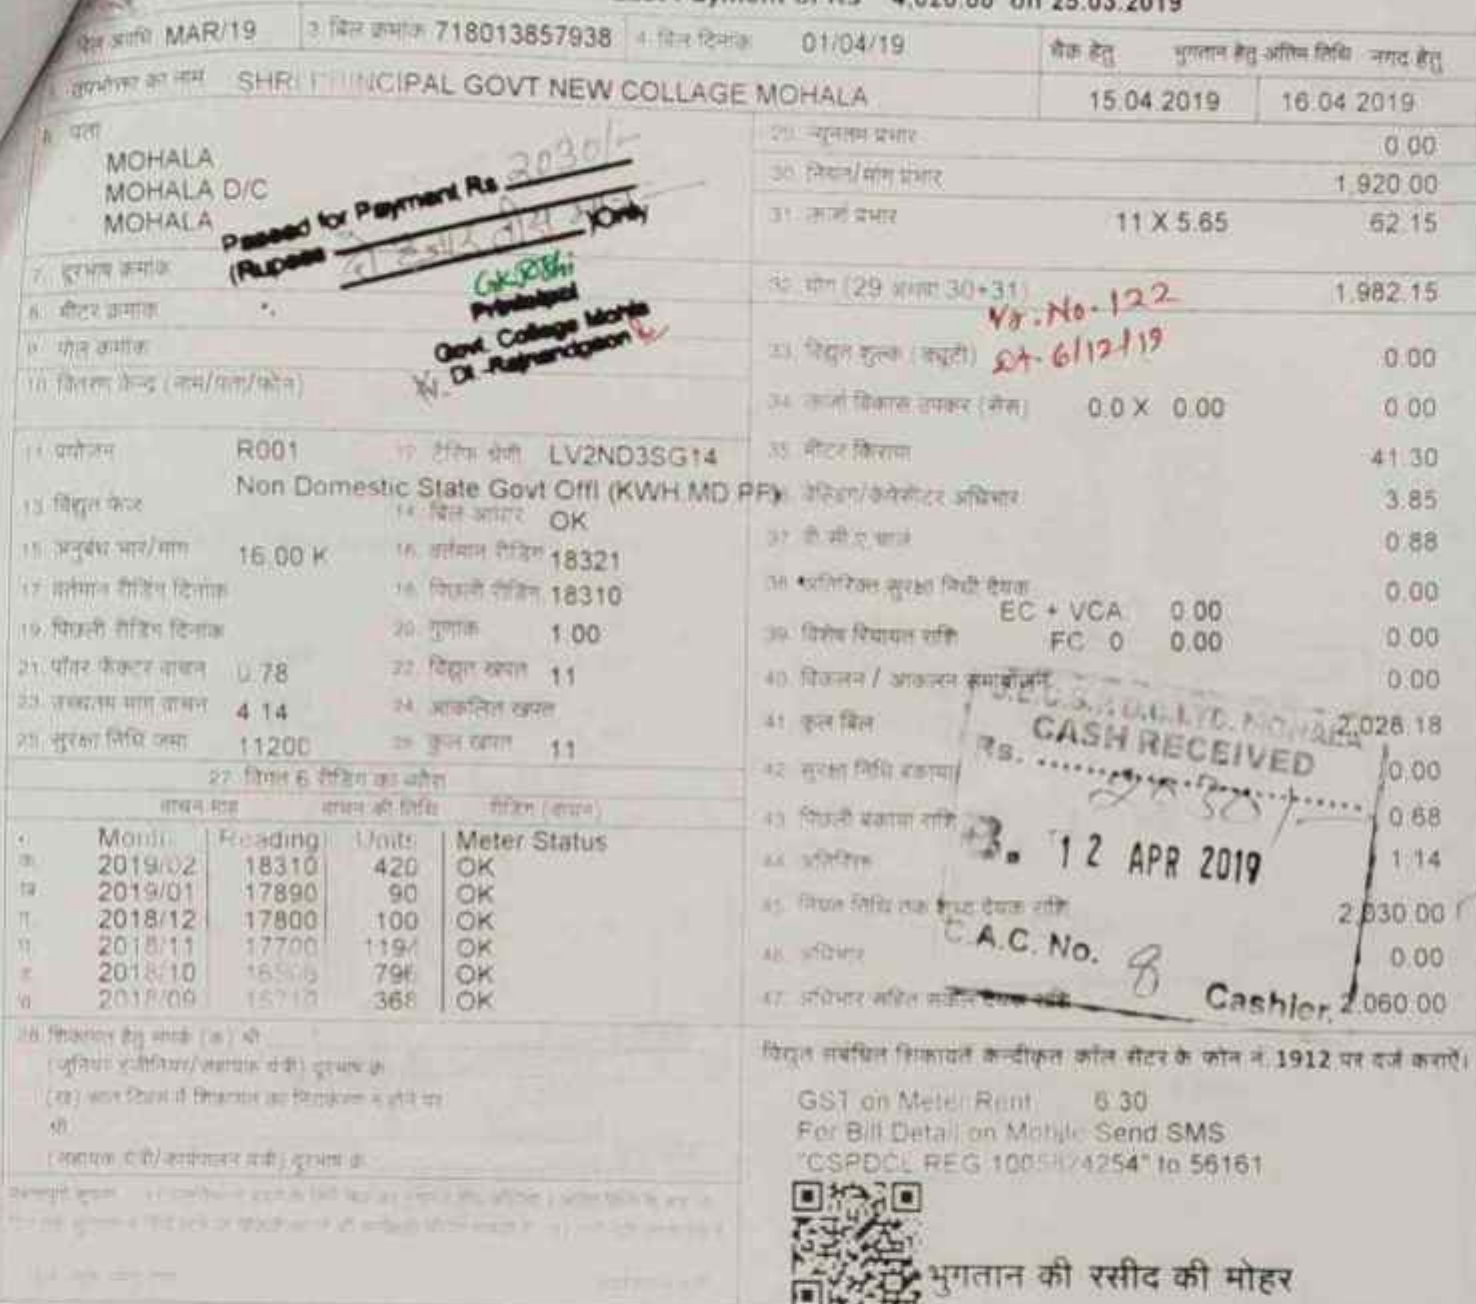 4,020.00 on 25.03.2019
बिल अवधि MAR/19 3 बिल क्रमांक 718013857938 4. बिल दिनांक 01/04/19 चैक हेतु भुगतान हेतु अंतिम तिथि नगद हेतु
उपभोक्ता का नाम SHRI PRINCIPAL GOVT NEW COLLAGE MOHALA 15.04.2019 16.04.2019
6. पता
MOHALA
MOHALA D/C
MOHALA
Passed for Payment Rs 2030/-
(Rupees दो हजार तीस )Only
GKJoshi
Principal
Govt. College Mohla
Dt.-Rajnandgaon
7. दूरभाष क्रमांक
8. मीटर क्रमांक
9. पोल क्रमांक
10. वितरण केन्द्र (नाम/पता/फोन)
11 प्रयोजन R001 12. टैरिफ श्रेणी LV2ND3SG14
Non Domestic State Govt Offl (KWH.MD PF)
13 विद्युत फेज 14 बिल आधार OK
15. अनुबंध भार/मांग 16.00 K 16. वर्तमान रीडिंग 18321
17 वर्तमान रीडिंग दिनांक 18. पिछली रीडिंग 18310
19. पिछली रीडिंग दिनांक 20. गुणांक 1.00
21. पॉवर फेक्टर वाचन 0.78 22. विद्युत खपत 11
23. उच्चतम मांग वाचन 4.14 24. आंकलित खपत
25. सुरक्षा निधि जमा 11200 26. कुल खपत 11
27. विगत 6 रीडिंग का ब्यौरा
वाचन माह वाचन की तिथि रीडिंग (वाचन)
Month Reading Units Meter Status
2019/02 18310 420 OK
2019/01 17890 90 OK
2018/12 17800 100 OK
2018/11 17700 OK
2018/10 796 OK
2018/09 368 OK
28 शिकायत हेतु संपर्क (क) श्री
29. न्यूनतम प्रभार 0.00
30. नियत/मांग प्रभार 1,920.00
31. ऊर्जा प्रभार 11 X 5.65 62.15
32. योग (29 अथवा 30+31) 1,982.15
Vr. No. 122
dt. 6/12/19
33. विद्युत शुल्क (ड्यूटी) 0.00
34. ऊर्जा विकास उपकर (सेस) 0.0 X 0.00 0.00
35. मीटर किराया 41.30
36. वेल्डिंग/केपेसीटर अधिभार 3.85
37. वी.सी.ए.चार्ज 0.88
38. अतिरिक्त सुरक्षा निधी देयक 0.00
EC + VCA 0.00
39. विशेष रियायत राशि FC 0 0.00 0.00
40. विकलन / आकलन समायोजन 0.00
41. कुल बिल 2,028.18
42. सुरक्षा निधि बकाया 0.00
43. पिछली बकाया राशि 0.68
44. 1.14
45. नियत तिथि तक शुध्द देयक राशि 2,030.00
46. अधिभार 0.00
47. अधिभार सहित सकल देयक राशि 2,060.00
CASH RECEIVED
Rs. 2030/-
12 APR 2019
C.A.C. No. 8 Cashier.
विद्युत संबंधित शिकायत केन्द्रीकृत कॉल सेंटर के फोन नं. 1912 पर दर्ज कराएँ।
GST on Meter Rent 6.30
For Bill Detail on Mobile Send SMS
"CSPDCL REG 1005874254" to 56161
भुगतान की रसीद की मोहर